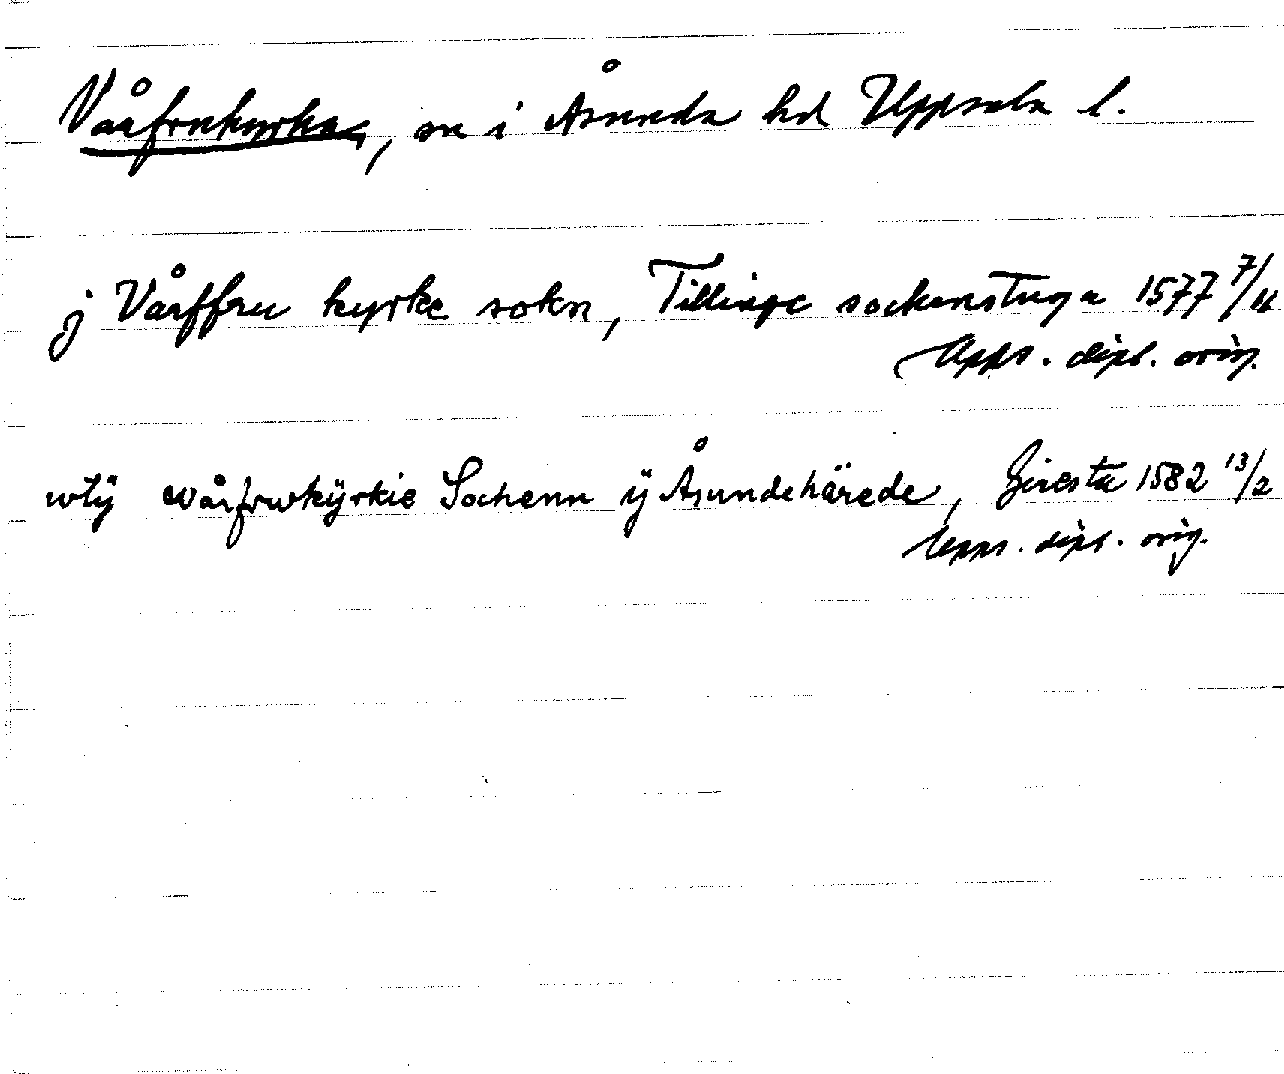 Vårfrukyrka, sn i Åsunda hd Uppsala l.
j Vårffru kyrke sokn, Tillinge sockenstuga 1577 7/11
Upps. dipl. orig.
wtÿ wårfrwkÿrkie Sochenn ÿ Åsundehärede, Giresta 1582 13/2
Upps. dipl. orig.